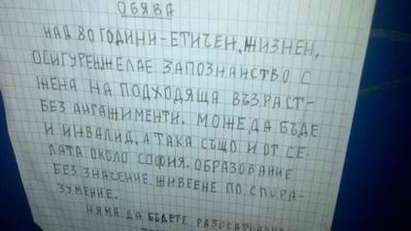 ОБЯВА
НАД 80 ГОДИНИ-ЕТИЧЕН, ЖИЗНЕН,
ОСИГУРЕН ЖЕЛАЕ ЗАПОЗНАНСТВО С
ЖЕНА НА ПОДХОДЯЩА ВЪЗРАСТ-
БЕЗ АНГАЖИМЕНТИ. МОЖЕ ДА БЪДЕ
И ИНВАЛИД, А ТАКА СЪЩО И ОТ СЕ
ЛАТА ОКОЛО СОФИЯ. ОБРАЗОВАНИЕ
БЕЗ ЗНАЧЕНИЕ ЖИВЕЕНЕ ПО СПОРА-
ЗУМЕНИЕ.
НЯМА ДА БЪДЕТЕ